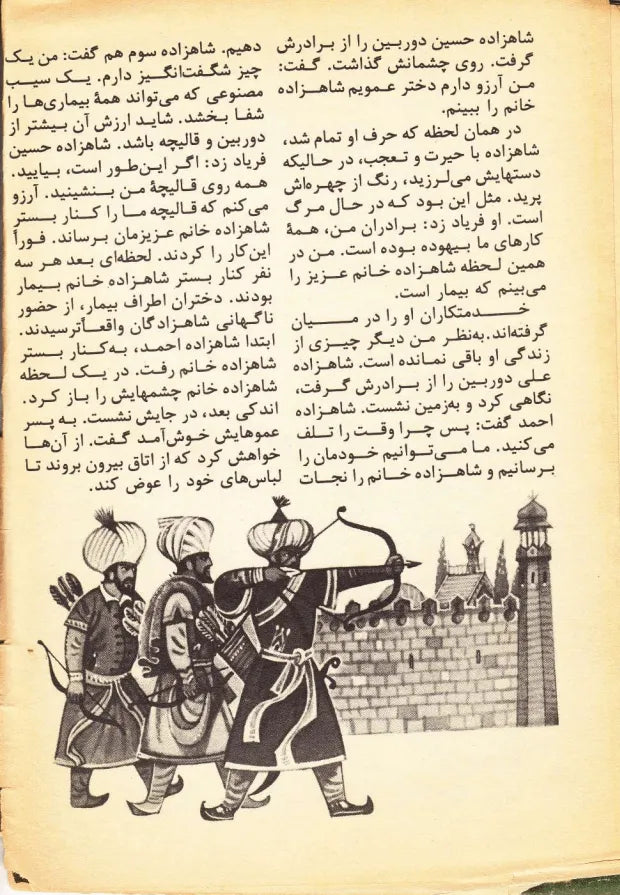 شاهزاده حسین دوربین را از برادرش
گرفت. روی چشمانش گذاشت. گفت:
من آرزو دارم دختر عمویم شاهزاده
خانم را ببینم.
در همان لحظه که حرف او تمام شد،
شاهزاده با حیرت و تعجب، در حالیکه
دستهایش می‌لرزید، رنگ از چهره‌اش
پرید. مثل این بود که در حال مرگ
است. او فریاد زد: برادران من، همهٔ
کارهای ما بیهوده بوده است. من در
همین لحظه شاهزاده خانم عزیز را
می‌بینم که بیمار است.
خدمتکاران او را در میان
گرفته‌اند. به‌نظر من دیگر چیزی از
زندگی او باقی نمانده است. شاهزاده
علی دوربین را از برادرش گرفت،
نگاهی کرد و به‌زمین نشست. شاهزاده
احمد گفت: پس چرا وقت را تلف
می‌کنید. ما می‌توانیم خودمان را
برسانیم و شاهزاده خانم را نجات
دهیم. شاهزاده سوم هم گفت: من یک
چیز شگفت‌انگیز دارم. یک سیب
مصنوعی که می‌تواند همهٔ بیماری‌ها را
شفا بخشد. شاید ارزش آن بیشتر از
دوربین و قالیچه باشد. شاهزاده حسین
فریاد زد: اگر این‌طور است، بیایید.
همه روی قالیچهٔ من بنشینید. آرزو
می‌کنم که قالیچه ما را کنار بستر
شاهزاده خانم عزیزمان برساند. فوراً
این‌کار را کردند. لحظه‌ای بعد هر سه
نفر کنار بستر شاهزاده خانم بیمار
بودند. دختران اطراف بیمار، از حضور
ناگهانی شاهزادگان واقعاً ترسیدند.
ابتدا شاهزاده احمد، به‌کنار بستر
شاهزاده خانم رفت. در یک لحظه
شاهزاده خانم چشمهایش را باز کرد.
اندکی بعد، در جایش نشست. به پسر
عموهایش خوش‌آمد گفت. از آن‌ها
خواهش کرد که از اتاق بیرون بروند تا
لباس‌های خود را عوض کند.